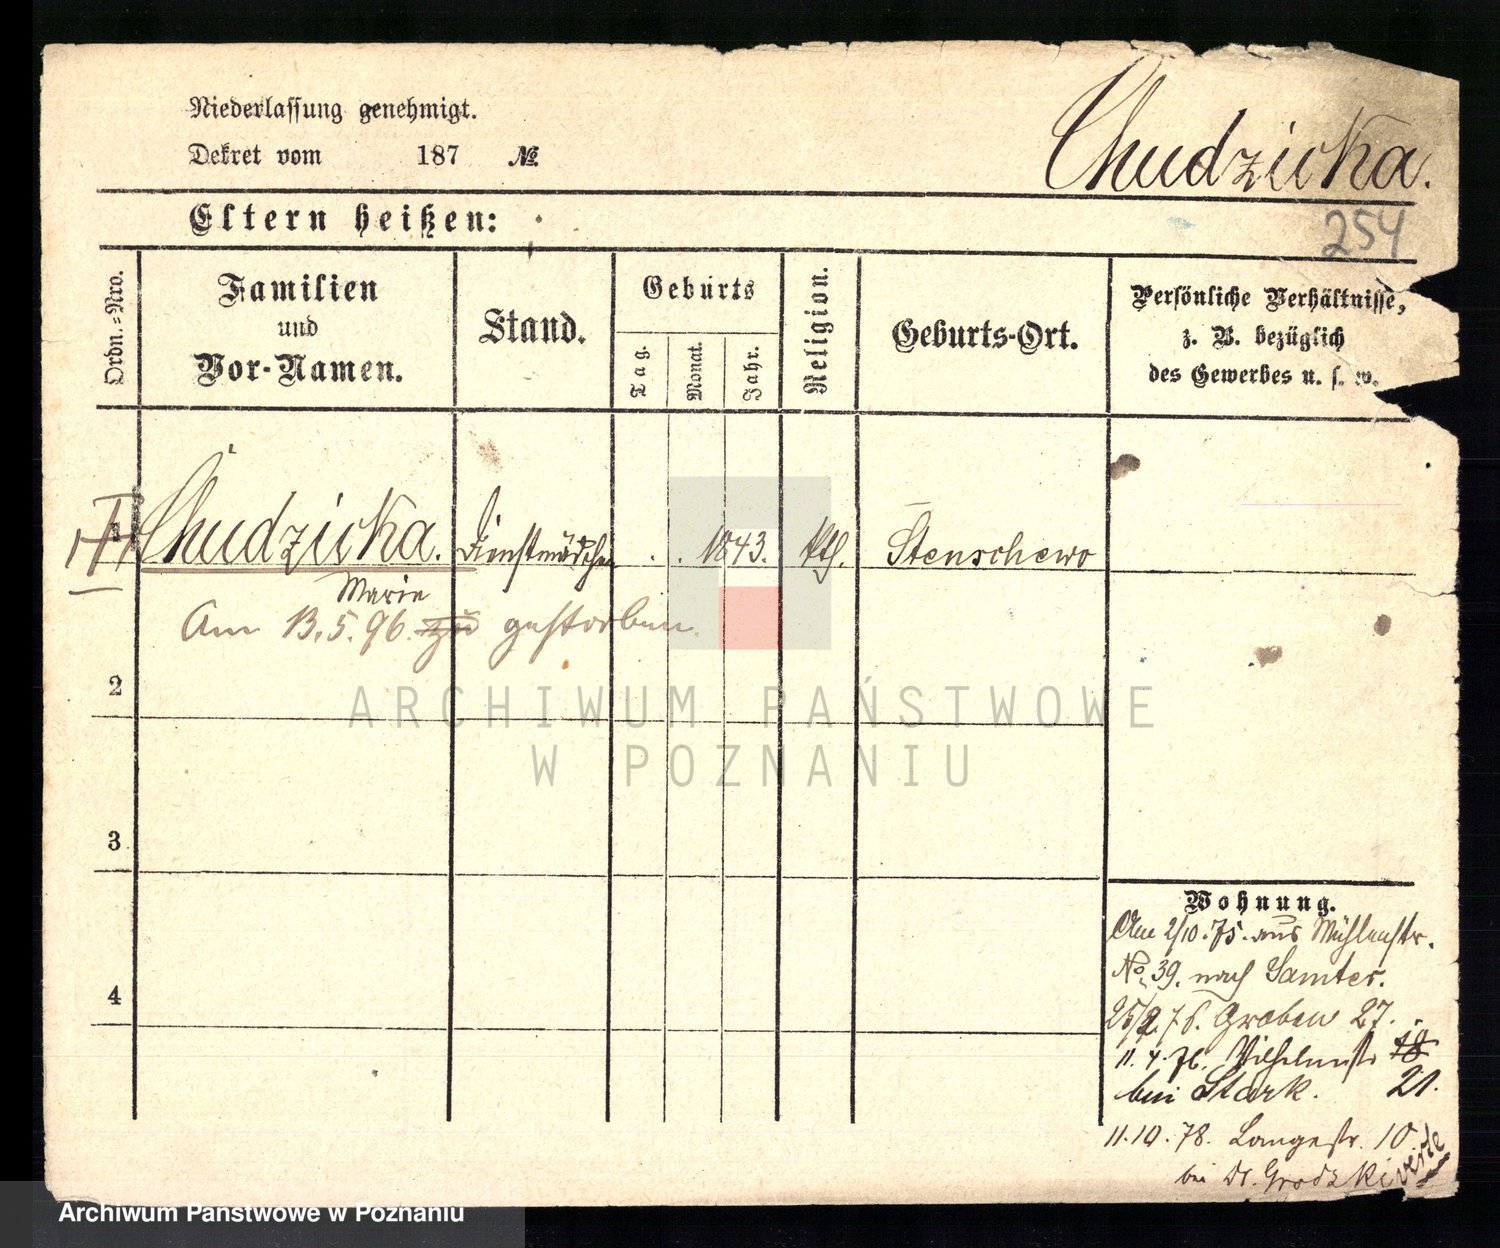 Niederlassung genehmigt.
Dekret vom 187 №
Chudzicka.
Eltern heißen:
254
Ordn.-Nro.
Familien
und
Vor-Namen.
Stand.
Geburts
Tag.
Monat.
Jahr.
Religion.
Geburts-Ort.
Persönliche Verhältnisse,
z. B. bezüglich
des Gewerbes u. s. w.
1 Chudzicka. Dienstmädchen . . 1843. kth. Stenschewo
Marie
Am 13.5.96. zu gestorben.
2
ARCHIWUM PAŃSTWOWE
W POZNANIU
3
4
Wohnung.
Am 2/10.75. aus Mühlenstr.
No. 39. nach Samter.
Graben 27.
11.4.76. Wilhelmstr 18
bei Stark. 21.
11.10.78. Langestr. 10
bei Dr. Grodzki
verte
Archiwum Państwowe w Poznaniu